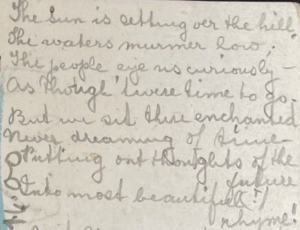 The Sun is setting over the hill,
The waters murmer low.
The people eye us curiously –
As though 'twere time to go.
But we sit there enchanted
Never dreaming of time
Putting our thoughts of the
future
Into most beautiful
rhyme!